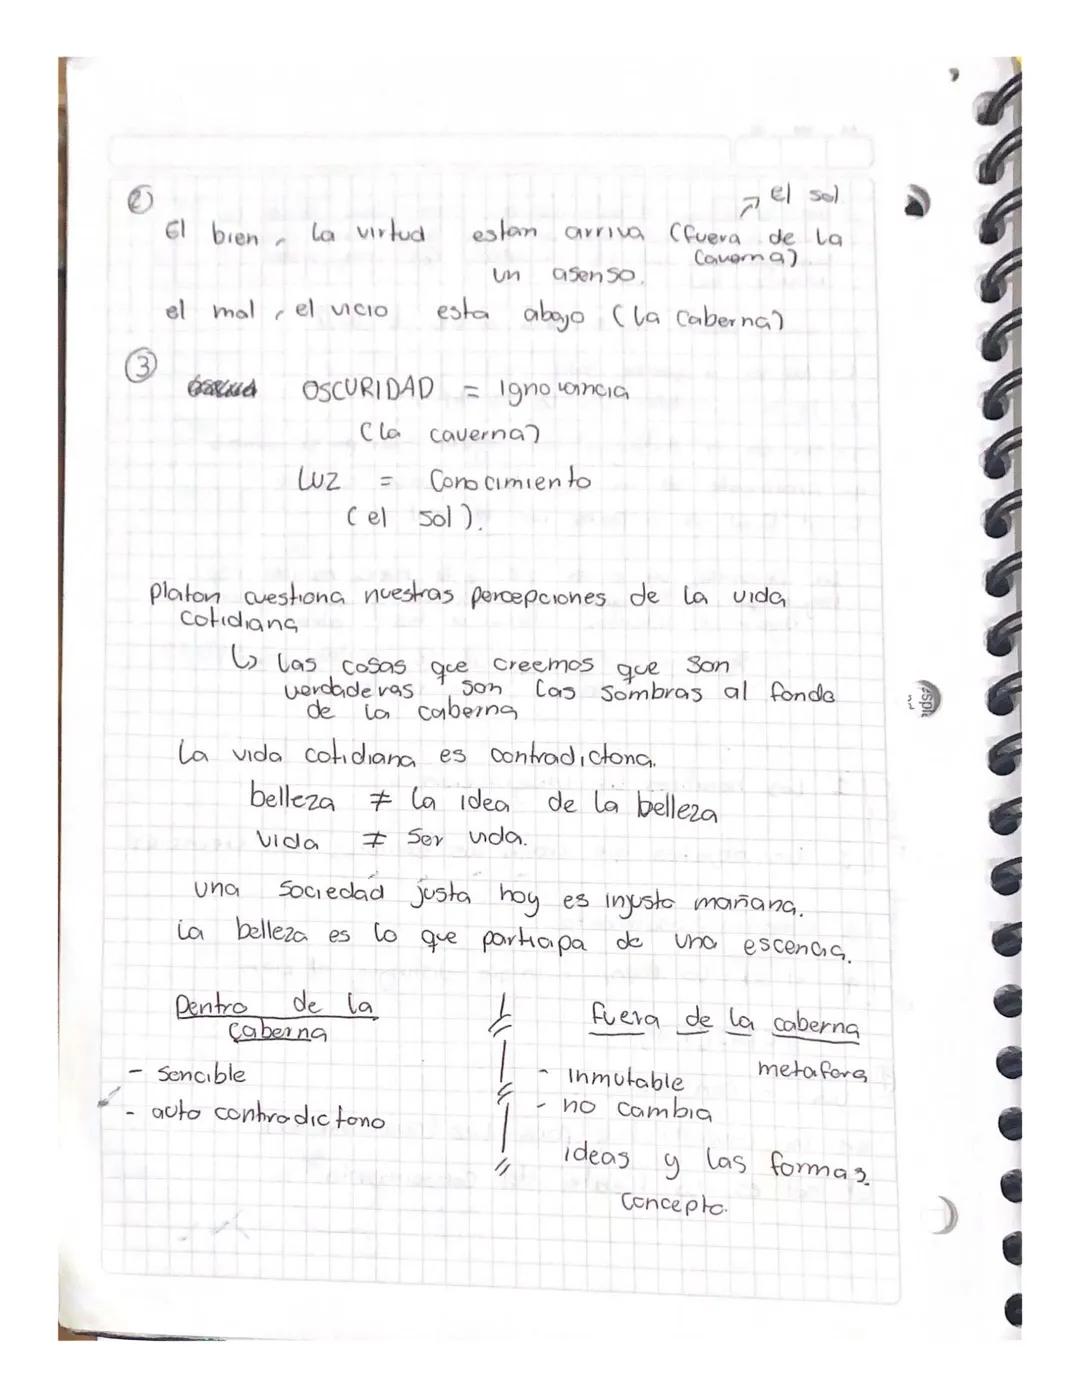 ②
↗ el sol
El bien, la virtud estan arriva (fuera de la
caverna)
un asenso.
el mal, el vicio esta abajo (la caberna)
③
OSCURIDAD = Ignorancia
(la caverna)
Luz = Conocimiento
(el sol).
Platon cuestiona nuestras percepciones de la vida
cotidiana
↳ las cosas que creemos que son
verdaderas son las sombras al fondo
de la caberna
La vida cotidiana es contradictoria.
belleza ≠ la idea de la belleza
vida ≠ ser vida.
una sociedad justa hoy es injusta mañana.
la belleza es lo que participa de una escencia.
Dentro de la
caberna
- sencible
- auto contradictorio
fuera de la caberna
metafora
- inmutable
- no cambia
ideas y las formas
concepto.